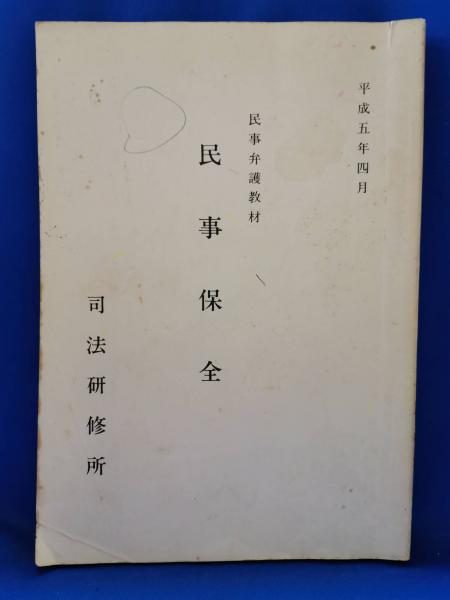 平成五年四月
民事弁護教材
民事保全
司法研修所